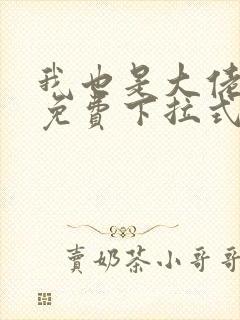 我也是大佬
免費下拉式
賣奶茶小哥哥